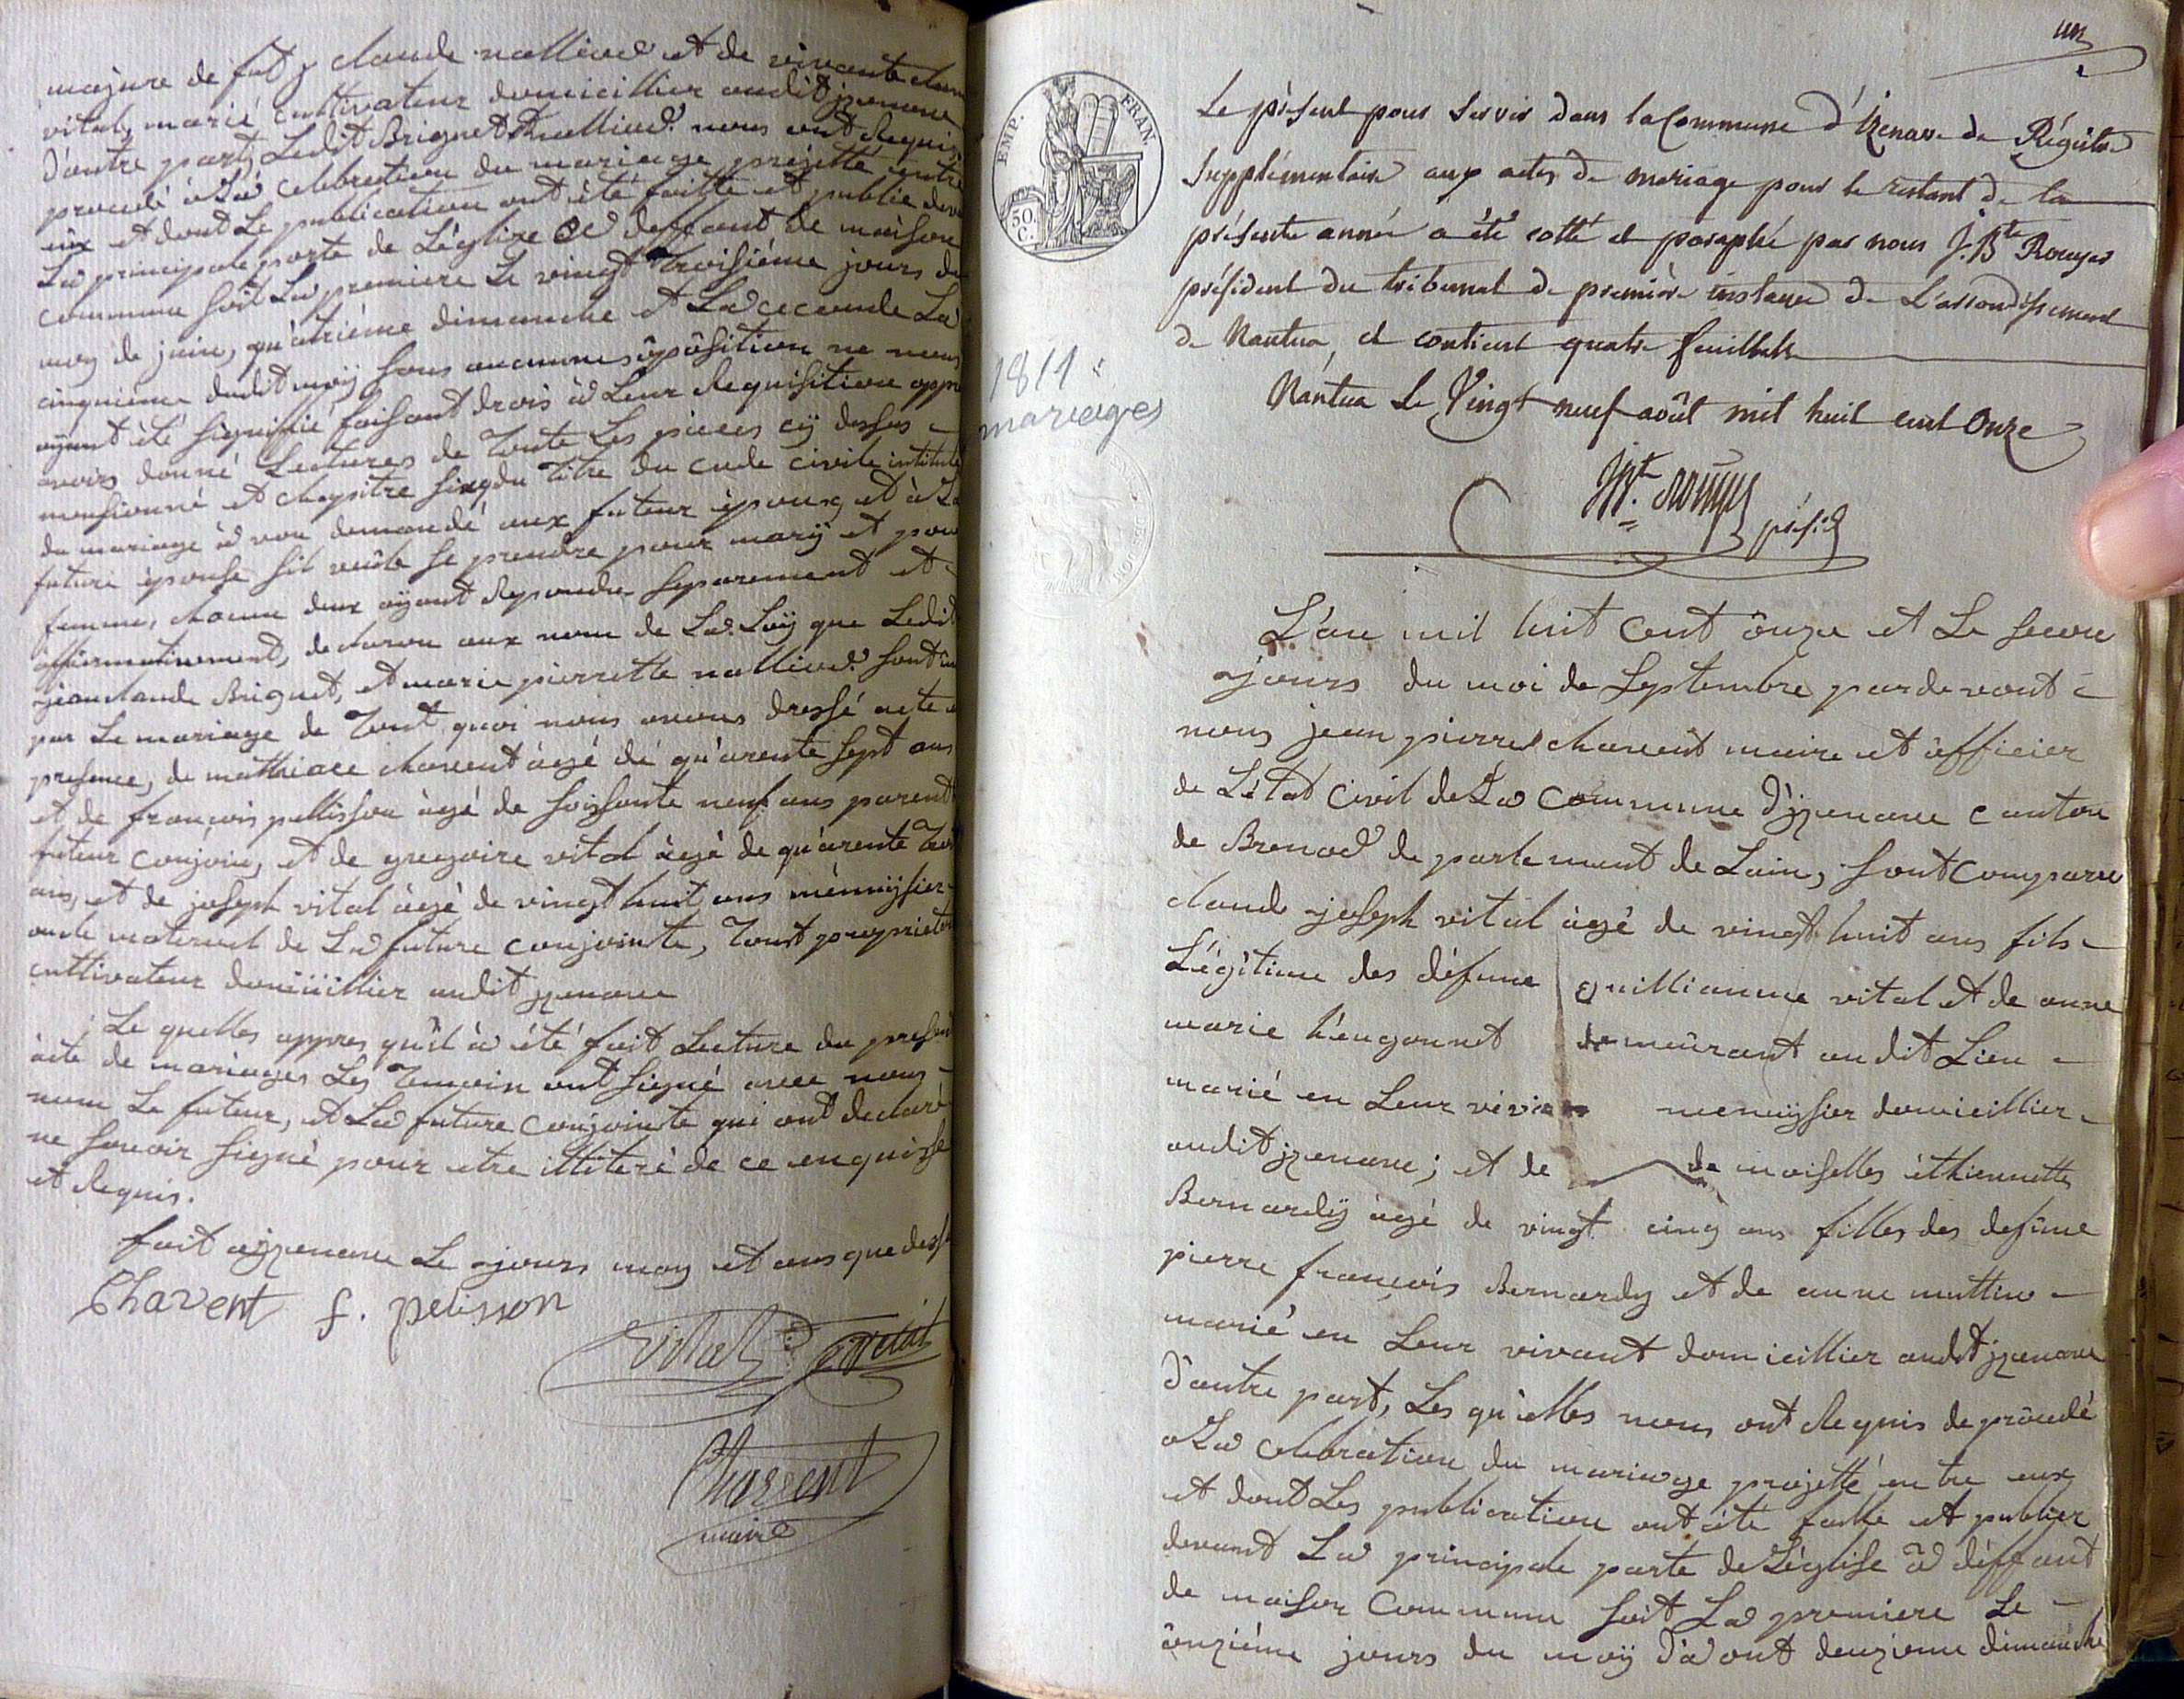 majure de fut claude nallied et de vivante
vital, marié cultivateur domicillier audit jzenave
d'autre part, Ledit Briquet nous ont Requis
procudé à La celebration du mariage projetté entre
eux et dont Le publication ont été faitte et publie
La principale porte de Léglize deffaut de maison
commune soit La premiere Le vingt troisiéme jours du
moy de juin, quàtriéme dimanche et La ceconde La
cinquiéme dudit moÿ sans aucunne ôpôsition ne nous
ayant été signifié faisant drois à Leur Requisition
avoirs donné Lectures de toute Les pieces cÿ dessus
mensionné et chapitre six du titre du code civile intitulé
du mariage demandé aux futeur époux, et à La
future épouse sil veule se prendre pour marÿ et pour
femme, chacun deux aÿant Repondu separement et
affirmativement, declaron aux nom de La Loÿ que Ledit
jean claude Briquet, et marie pierrette nallied sont
par Le mariage de tout quoi nous avons dressé acte
presence, de mathiace chavent àgé dé qu'arente sept ans
et de françois pellisson àgé de soissante neuf ans parent
futeur conjoin, et de gregoire vital àgé de qu'arente
ans, et de joseph vital àgé de vingt huit ans ménuÿsier
oncle maternel de La future conjointe, tout proprietere
cultivateur domicillier audit jzenave
Le quelles appres qu'il à été fait Lecture du present
àcte de mariages Les temoin ont signé avec nous
non Le futeur, et La future conjointe qui ont declaré
ne savoir signé pour etre illiteré de ce enquis
et Requis.
fait à jzenave Le jours moy et ans que dessu
Chavent f. pelisson
vital
Chavent
maire
un
1
EMP. FRAN.
50. C.
Le présent pour servir dans la Commune d'Izenave de Régistre
Supplémentaire aux actes de mariage pour le restant de la
présente année a été cotté et paraphé par nous J. Bte Rouyer
président du tribunal de première instance de L'arrondissement
de Nantua, et contient quatre feuillets
Nantua Le Vingt neuf août mil huit cent Onze
1811
mariages
L'an mil huit cent ônze et Le
jours du moi de Septembre pardevant
nous jean pierre chavent maire et ôfficier
de L'état civil de La commune d'jzenave canton
de Brenod departement de Lain, sont comparu
claude joseph vital àgé de vingt huit ans fils
Légitime des défune guillianme vital et de anne
marie demeûrant audit Lieu
marié en Leur menuÿsier domicillier
audit jzenave ; et de demoiselles éthiennette
Bernardÿ àgé de vingt cinq ans filles des defûne
pierre françois Bernardy et de anne
marié en Leur vivant domicillier audit jzenave
d'autre part, Les qu'elles nous ont Requis de prôcudé
à La celebration du mariage projetté entre eux
et dont Les publication ont été faitte et publier
devant La principale porte de Léglise à déffaut
de maison commune soit La premiere Le
ônziéme jours du moÿ d'àout deuzieme dimanche